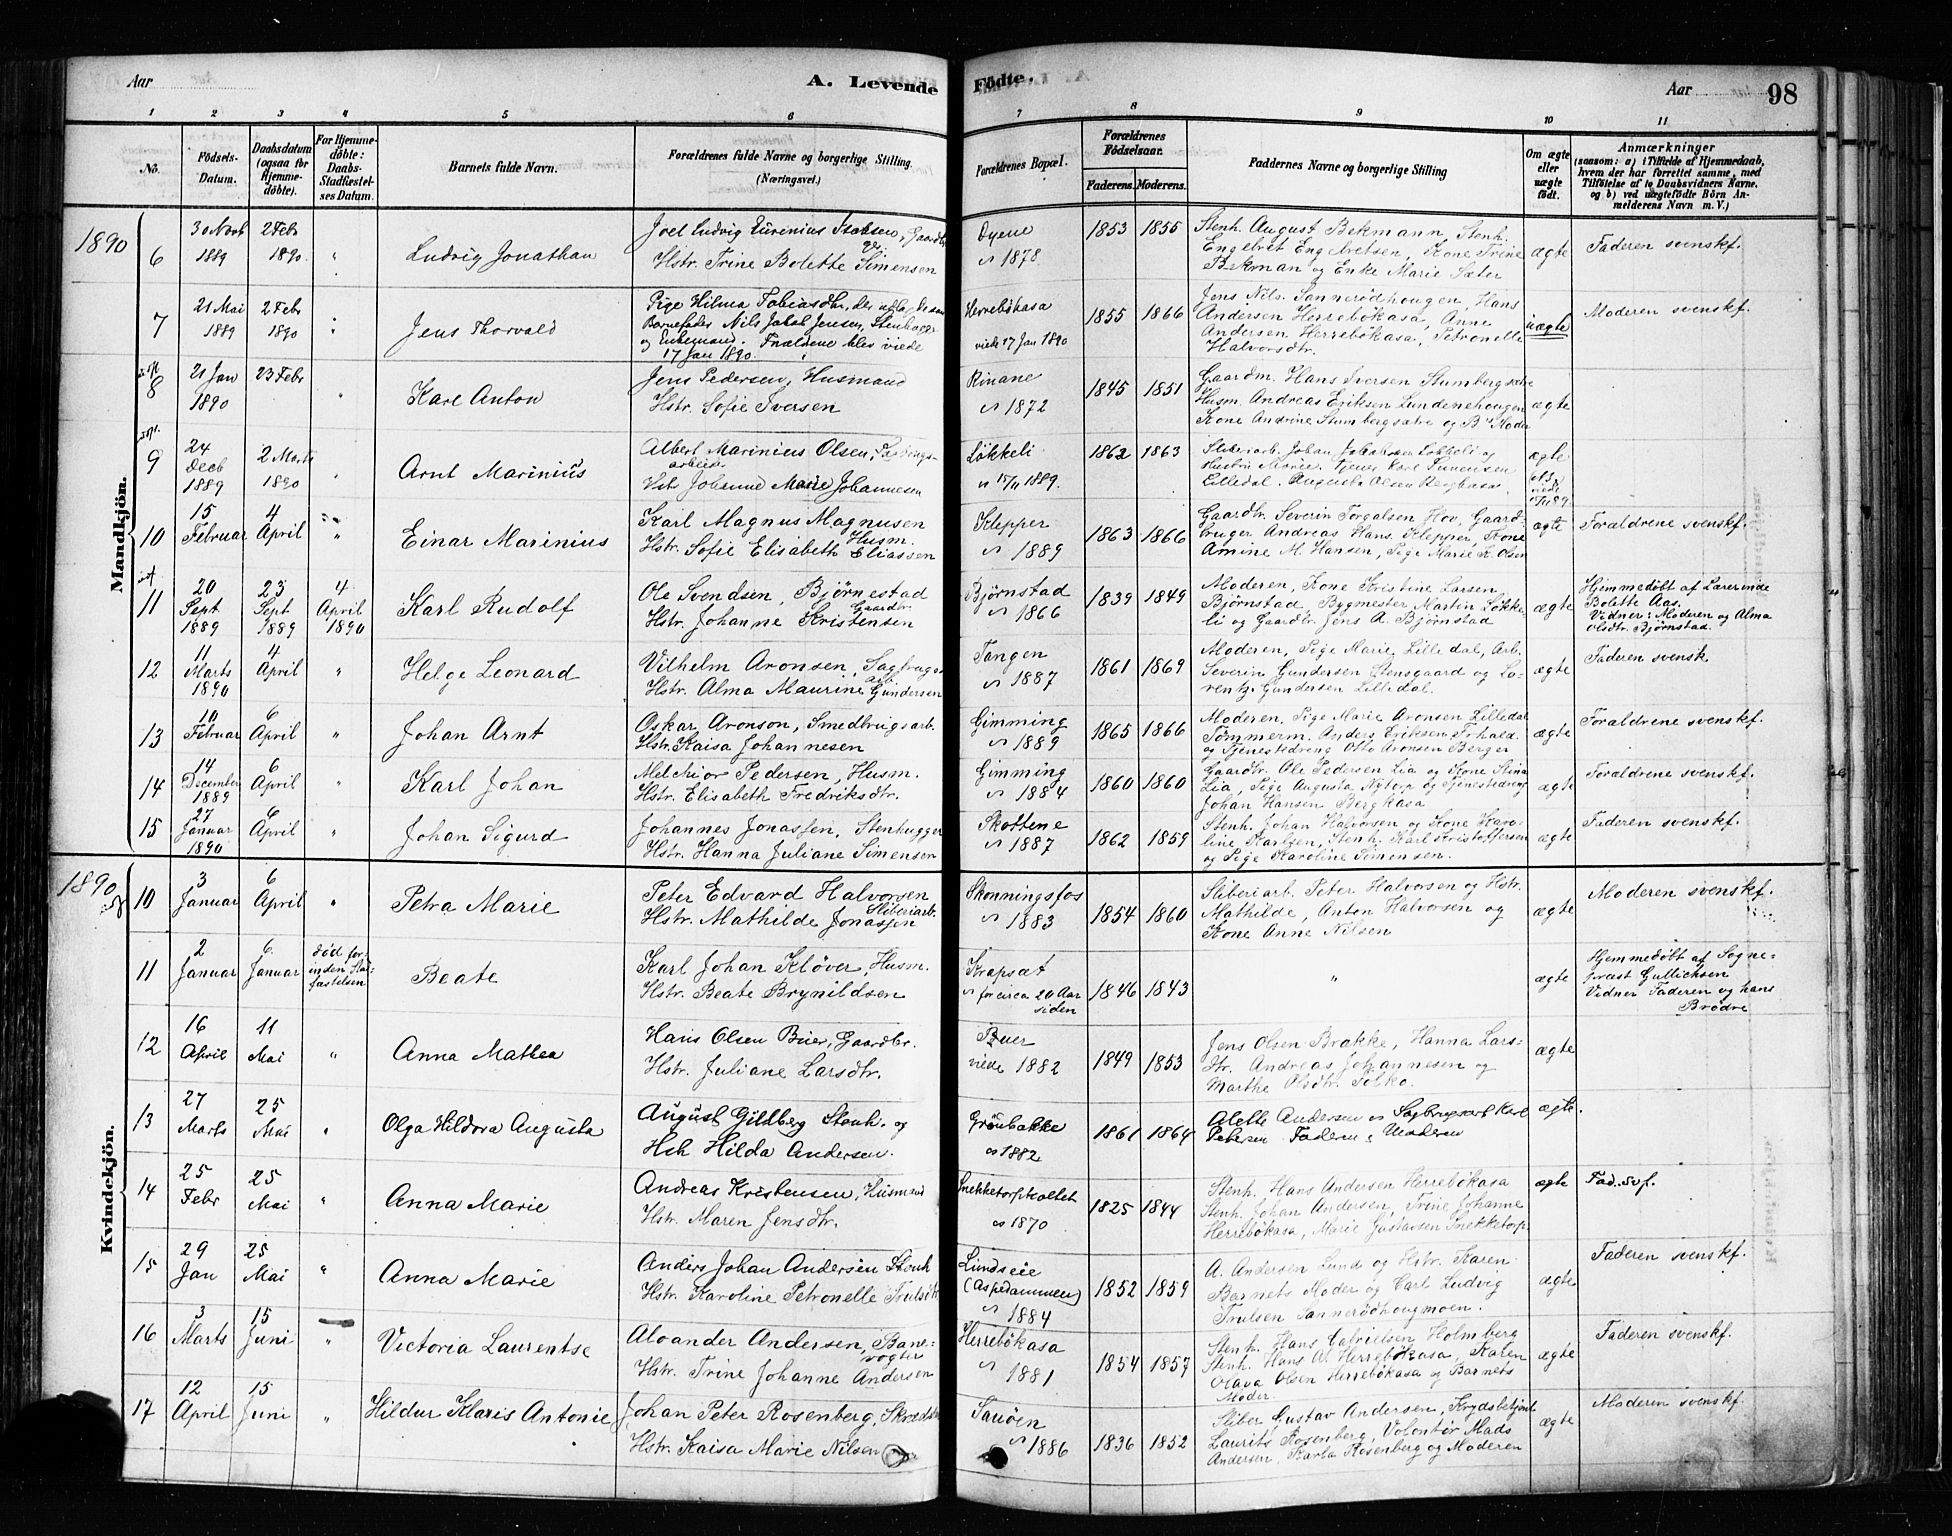 Aar
A. Levende
Födte.
Aar
98
1 2 3 4 5 6 7 8 9 10 11
No.
Födsels-Datum.
Daabsdatum (ogsaa for Hjemmedöbte).
For Hjemmedöbte: Daabs-Stadfæstelses Datum.
Barnets fulde Navn.
Forældrenes fulde Navne og borgerlige Stilling. (Næringsvei.)
Forældrenes Bopæl.
Forældrenes Födselsaar.
Faderens. Moderens.
Faddernes Navne og borgerlige Stilling
Om ægte eller uægte födt.
Anmærkninger
(saasom: a) i Tilfælde af Hjemmedaab, hvem der har forrettet samme, med Tilföielse af to Daabsvidners Navne. og b) ved uægtefödte Börn Anmelderens Navn m. V.)
Mandkjön.
1890
6
30 Novb 1889
2 Febr 1890
"
Ludvig Jonathan
Joel Ludvig Isaksen, Gaardbr
Hstr. Trine Bolette Simensen
Öyene
1878
1853 1855
Stenh. August Bekmann, Stenh.
Englebret Engebretsen, Kone Trine
Bekman og Enke Marie Sæter
ægte
Faderen svenskf.
7
21 Mai 1889
2 Febr 1890
Jens Thorvald
Pige Hilma Tobiasdtr, der udlagde som
Barnefader Nils Jakob Jensen, Stenhugger
og Enkemand. Forældrene blev viede
17 Jan 1890.
Herrebökasa
viede 17 Jan 1890
1855 1866
Jens Nils. Sannerödhougen, Hans
Andersen Herrebökasa, Anne
Andersen Herrebökasa, Petronelle
Halvorsdtr.
uægte
Moderen svenskf.
8
21 Jan 1890
23 Febr
"
Karl Anton
Jens Pedersen, Husmand
Hstr. Sofie Iversen
Rinane
1872
1845 1851
Gaardm. Hans Iversen Stumbergsætre
Husm. Andreas Eriksen Lundenehougen
Kone Andrine Stumbergsætre og B. Moder
ægte
9
24 Decb 1889
2 Marts 1890
"
Arnt Marinius
Albert Marinius Olsen, Sagbrugs-
arbeider
Hstr Johanne Marie Johannesen
Løkkeli
15/11 1889.
1862 1863
Sliberiarb. Johan Jakobsen Løkkeli og
Hustru Marie. Tjener Karl
Lilledal. Augusta Olsen Bergkasa
ægte
viede 15/11 89
10
15 Februar
4 April
"
Einar Marinius
Karl Magnus Magnusen
Husm.
Hstr. Sofie Elisabeth Eliassen
Klepper
1889
1863 1866
Gaardbr. Severin Torgalsen Hov, Gaard-
bruger Andreas Hans. Klepper, Kone
Amine M. Hansen, Pige Marie K. Olsen
ægte
Forældrene svenskf.
11
20 Sept 1889
23 Sept 1889
4 April 1890
Karl Rudolf
Ole Svendsen, Bjørnestad
Gaardbr.
Hstr. Johanne Kristensen
Bjørnstad
1866
1839 1849
Moderen, Kone Kristine Larsen
Bjørnstad, Bygmester Martin Løkke-
li og Gaardbr. Jens A. Bjørnstad
ægte
Hjemmedøbt af Lærerinde
Bolette Aas.
Vidner: Moderen og Alma
Olsdtr. Bjørnstad.
12
11 Marts 1890
4 April
"
Helge Leonard
Vilhelm Aronsen, Sagbrugs-
arb.
Hstr. Alma Maurine Gundersen
Tangen
1887
1861 1869
Moderen, Pige Marie Lilledal, Arb.
Severin Gundersen Stensgaard og Lo-
rentz Gundersen Lilledal.
ægte
Faderen svensk
13
10 Februar
6 April
"
Johan Arnt
Oskar Aronson, Smedbrugsarb.
Hstr. Kaisa Johannesen
Gimming
1889
1865 1866
Moderen, Pige Marie Aronsen Lilledal
Tømmerm. Anders Eriksen
og Tjenestedreng Otto Aronsen Berger
ægte
Forældrene svenskf.
14
14 December 1889
6 April
"
Karl Johan
Melchior Pedersen, Husm.
Hstr. Elisabeth Fredriksdtr.
Gimming
1884
1860 1860
Gaardbr. Ole Pedersen Lia og Kone Stina
Lia, Pige Augusta Nytorp og Tjenestedreng
Johan Hansen Bergkasa
ægte
Forældrene svenskf.
15
27 Januar 1890
6 April
"
Johan Sigurd
Johannes Jonassen, Stenhugger
Hstr. Hanna Juliane Simensen
Skottene
1887
1862 1859
Stenh. Johan Halvorsen og Kone Karo-
line Karlsen, Stenh. Karl Kristoffersen
og Pige Karoline Simensen.
ægte
Faderen svenskf.
Kvindekjön.
1890
10
3 Januar
6 April
"
Petra Marie
Peter Edvard Halvorsen
Sliberiarb.
Hstr. Mathilde Jonassen
Skonningsfos
1883
1854 1860
Sliberiarb. Peter Halvorsen og Hstr.
Mathilde, Anton Halvorsen og
Kone Anne Nilsen
ægte
Moderen svenskf.
11
2 Januar
6 Januar
död for-
inden Stad-
fæstelsen
Beate
Karl Johan Kløver, Husm.
Hstr. Beate Brynildsen
Krapsæt
for circa 20 Aar
siden
1846 1843
"
ægte
Hjemmedøbt af Sogne-
præst Gullichsen
Vidner Faderen og hans
Brødre
12
16 April
11 Mai
"
Anna Mathea
Hans Olsen Buer, Gaardbr.
Hstr. Juliane Larsdtr.
Buer
viede 1882
1849 1853
Jens Olsen Brække, Hanna Lars-
dtr. Andreas Johannesen og
Marthe Olsdtr. Folko.
ægte
13
27 Marts
25 Mai
"
Olga Hildora Augusta
August Gildberg Stenh. og
Hstr Hilda Andersen.
Grönbakke
1882
1861 1864
Alette Andersen og Sagbrugsarb Karl
Petersen Faderen & Moderen
ægte.
14
25 Febr
25 Mai
"
Anna Marie
Andreas Kristensen, Husmand
Hstr. Maren Jensdtr.
Snekketorpkollet
1870
1825 1844
Stenh. Hans Andersen Herrebökasa
Stenh. Johan Andersen, Trine Johanne
Herrebökasa, Marie Gustavsen Snekketorp
ægte
Fad. svf.
15
29 Jan
25 Mai
"
Anna Marie
Anders Johan Andersen Stenh
Hstr. Karoline Petronelle Trulsdtr
Lundseie
(Aspedammen)
1884
1852 1859
A. Andersen Lund og Hstr. Karen
Barnets Moder og Carl Ludvig
Trulsen Sannerödhougmoen.
ægte
Faderen svenskf.
16
3 Marts
15 Juni
"
Victoria Laurentse
Alexander Andersen, Bane-
vogter
Hstr. Trine Johanne Andersen
Herrebökasa
1881
1854 1857
Stenh. Hans Gabrielsen Holmberg
Stenh. Hans A. Herrebökasa, Karen
Olava Olsen Herrebökasa og Barnets
Moder
ægte
Faderen svenskf.
17
12 April
15 Juni
"
Hildur Klaris Antonie
Johan Peter Rosenberg, Skrædder
Hstr. Kaisa Marie Nilsen
Sauöen
1886
1836 1852
Sliber Gustav Andersen, Krydsbetjent
Laurits Rosenberg, Volontør Mads
Andersen, Karla Rosenberg og Moderen
ægte
Moderen svenskf.